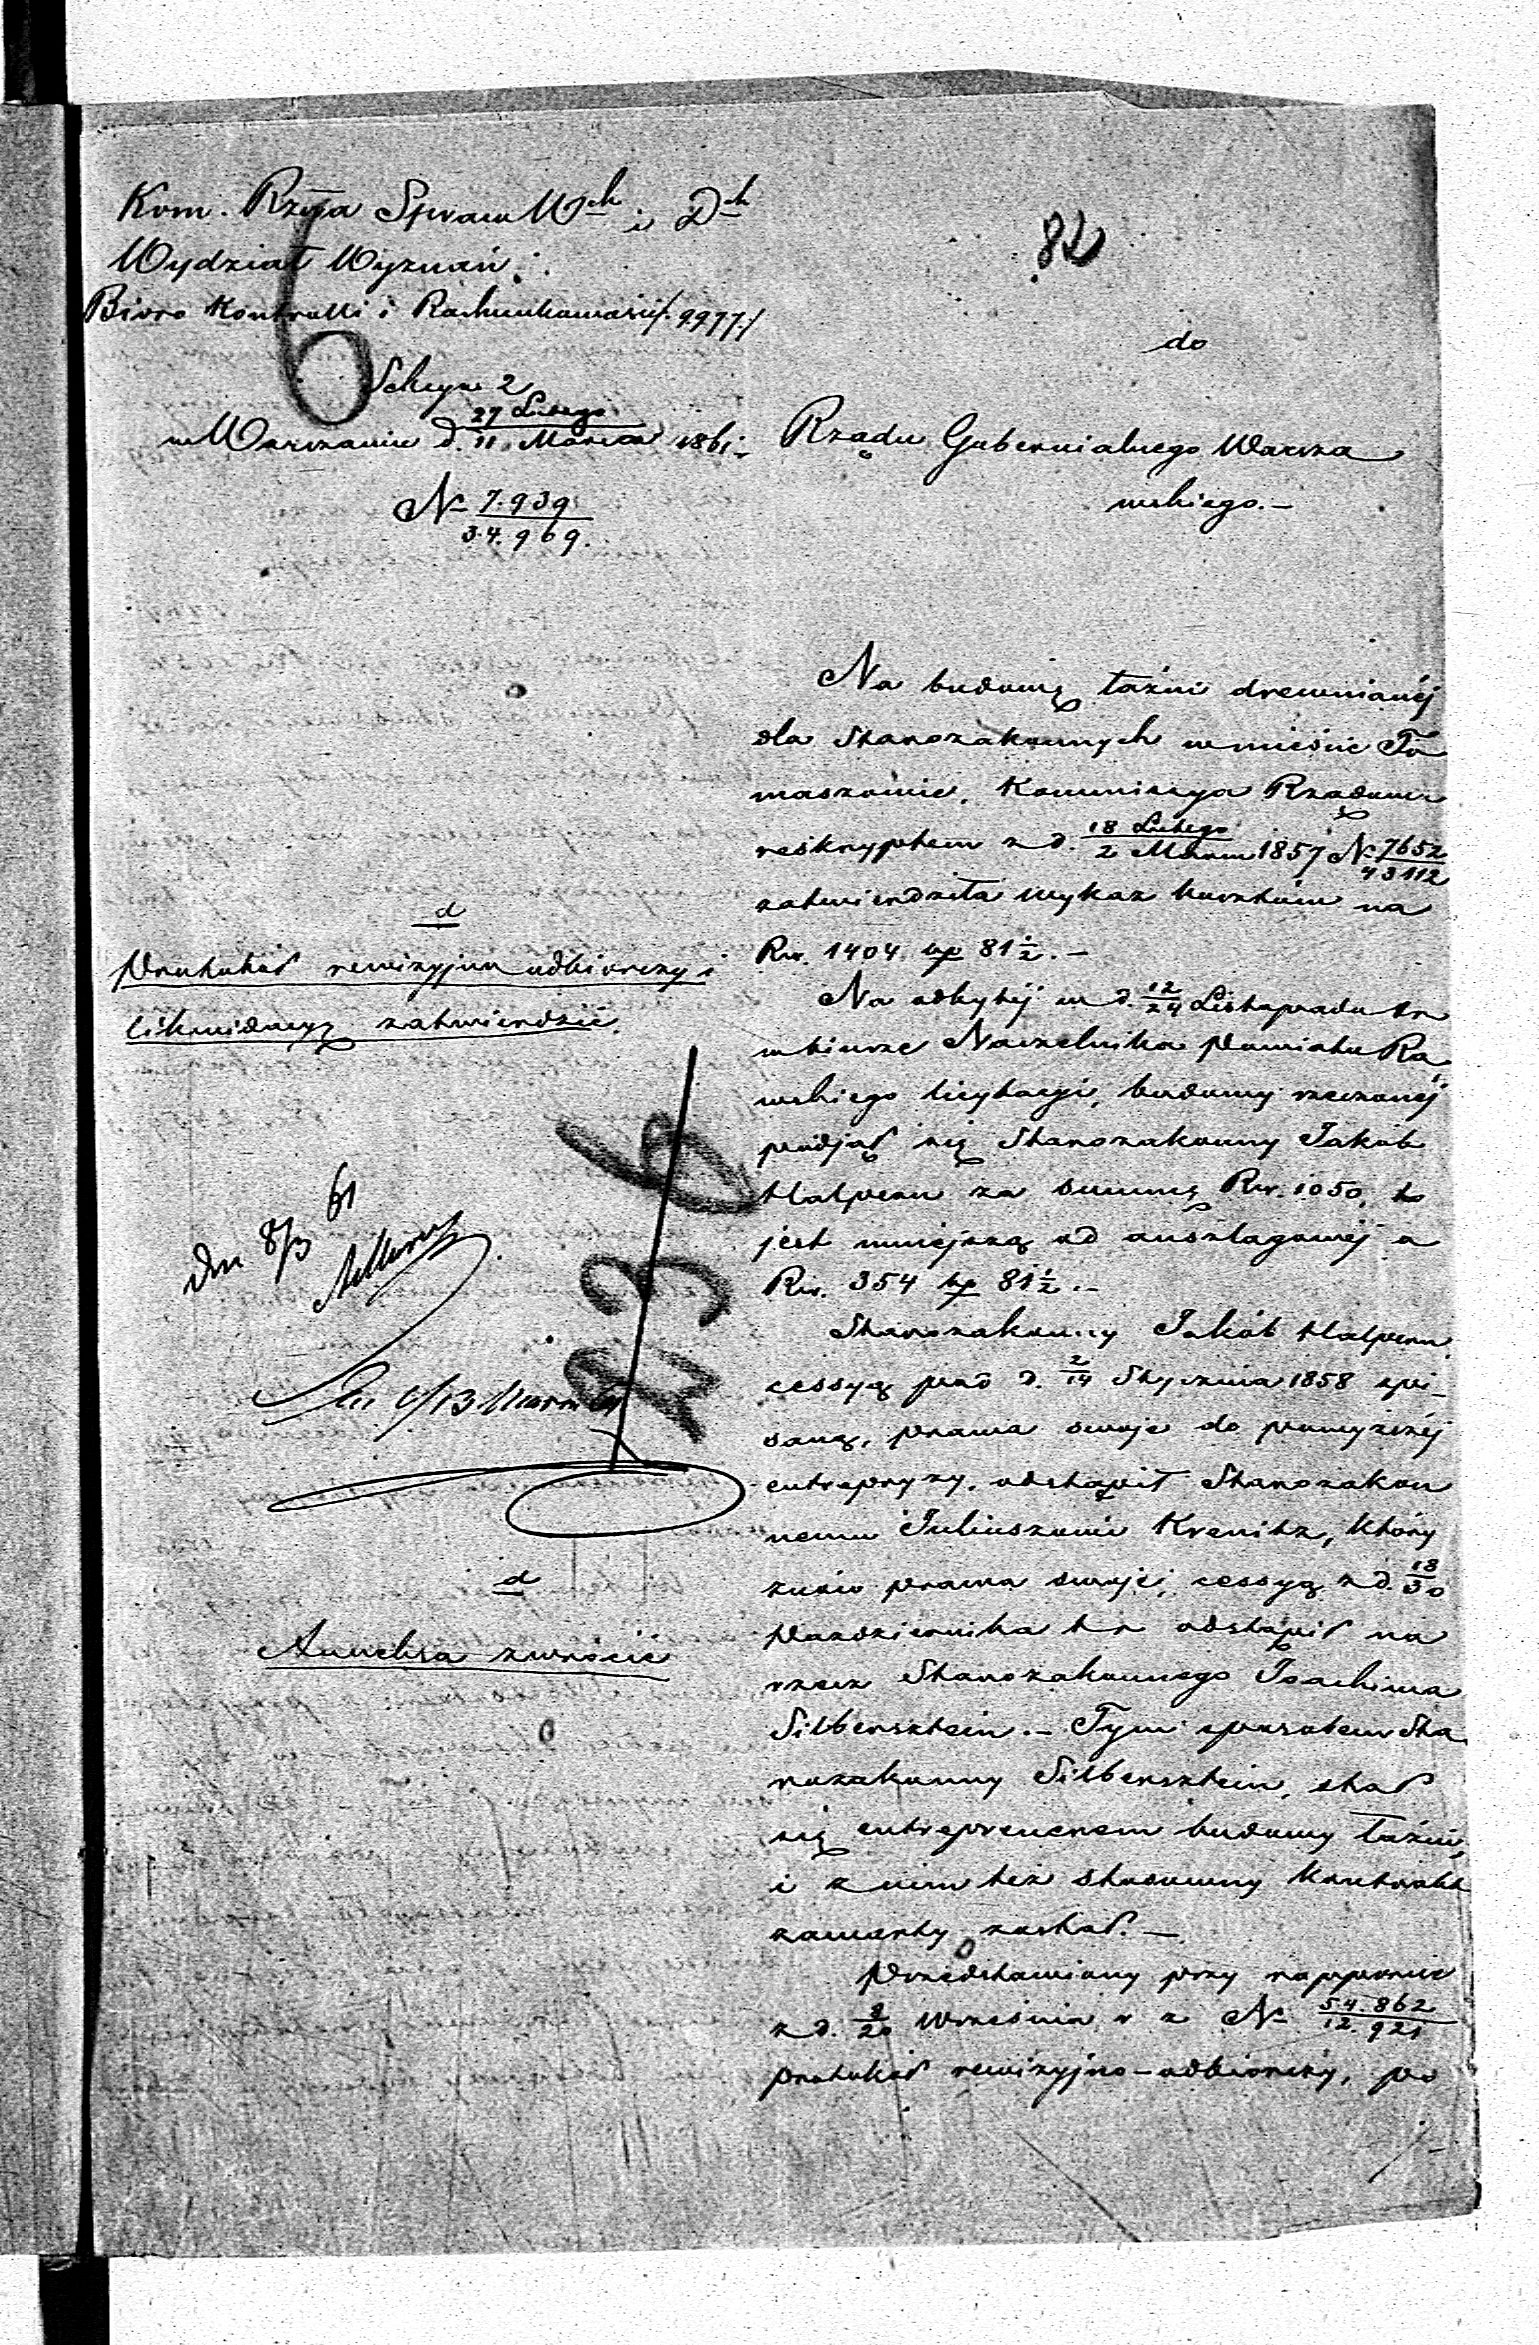 82
Kom. Rząa Spraw Wch i Dch
Wydział Wyznań.
Biuro Kontrolli i Rachunkowości /: 9977 :/
Sekcya 2
w Warszawie d. 27 Lutego / 11 Marca 1861.
N 7.939 / 34.969.
do
Rządu Gubernialnego Warsza
wskiego.-
d
Protokół rewizyjno odbiorczy i
likwidacyą zatwierdzić.
dn 8/3 61
d
Annehsa zwrócić
6
Na budowę łaźni drewnianéj
dla Starozakonnych w mieście To
maszowie, Kommissya Rządowa
reskryptem z d. 18 Lutego / 2 Marca 1857 N 7652 / 43112
zatwierdziła wykaz kosztów na
Rsr. 1404 kp 81 1/2.-
Na odbytéj w d. 12/24 Listopada t r
w biurze Naczelnika Powiatu Ra
wskiego licytacyi, budowy rzeczonéj
podjął się Starozakonny Jakób
Halpern za summę Rsr. 1050, to
jest mniejszą od anszlagowéj o
Rsr. 354 kp 81 1/2.-
Starozakonny Jakób Halpern
cessyą pod d. 2/14 Stycznia 1858 spi_
saną, prawa swoje do powyższéj
entrepryzy, odstąpił Starozakon
nemu Juliuszowi Krenitz, który
znów prawa swoje, cessyą z d. 18/30
Października t r odstąpił na
rzecz Starozakonnego Joachima
Silbersztein.- Tym sposobem Sta
rozakonny Silbersztein, stał
się entreprenerem budowy łaźni,
i z nim też stosowny Kontrakt
zawarty został.-
Przedstawiony przy rapporcie
z d. 8/20 Września r z N 54.862 / 12.921
protokół rewizyjno-odbiorczy, po